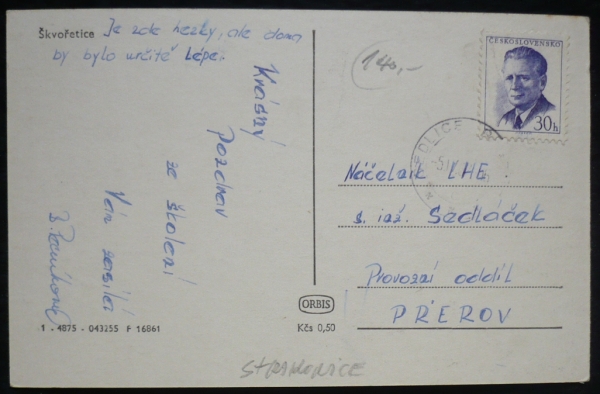 Škvořetice
Je zde hezky, ale doma
by bylo určitě lépe.
Krásný
pozdrav
ze školení
Vám zasílá
140,-
ČESKOSLOVENSKO
30h
Náčelník LHE
s. inž. Sedláček
Provozní oddíl
PŘEROV
ORBIS
Kčs 0,50
1 - 4875 - 043255 F 16861
STRAKONICE